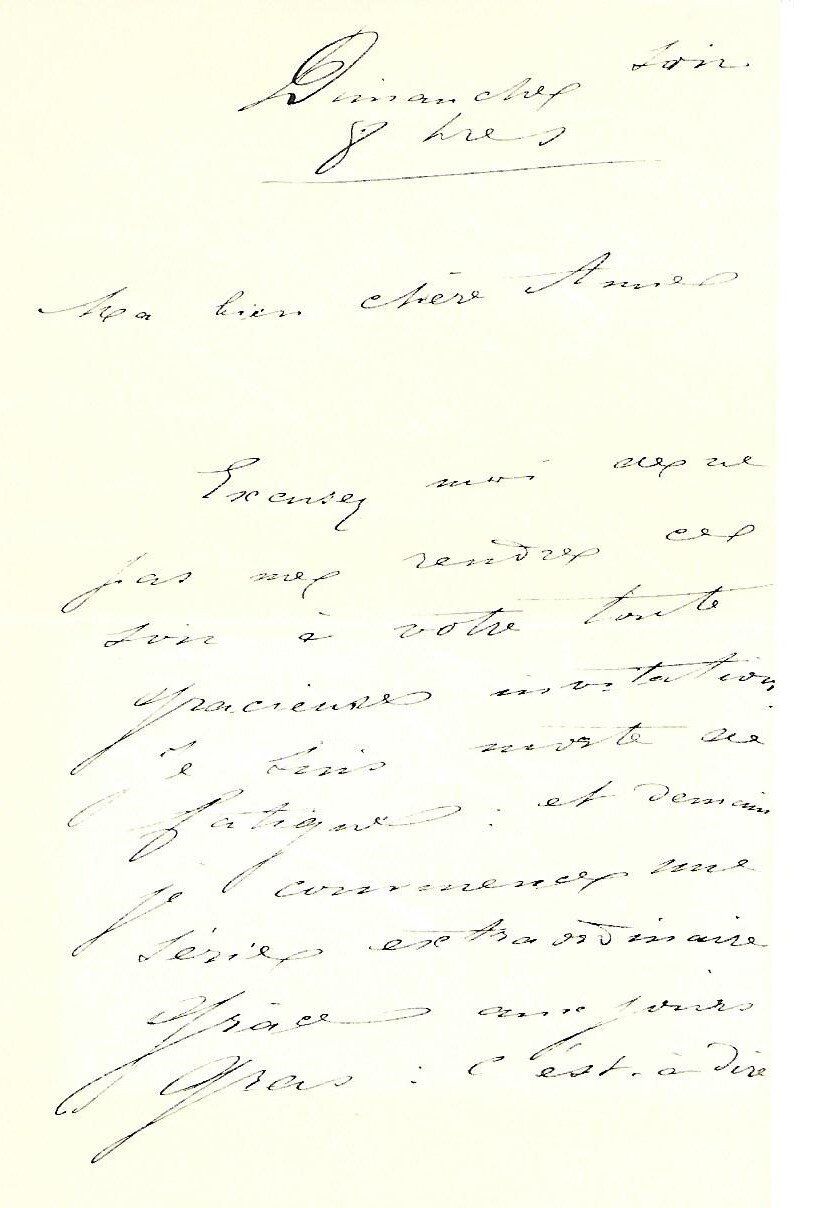 Dimanche soir
8 hres
Ma bien chère Amie
Excusez moi de ne
pas me rendre ce
soir à votre toute
gracieuse invitation.
Je suis morte de
fatigue : et demain
je commence une
série extraordinaire
grâce aux jours
gras : c'est-à dire